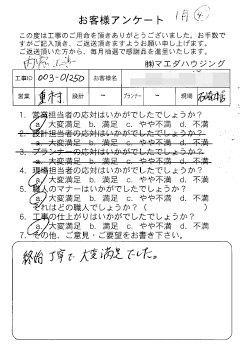 お客様アンケート 1月 4
この度は工事のご用命を頂きありがとうございました。お手数で
すがご記入頂き、ご返送頂きますようお願い申し上げます。
ご返送頂いた方から、毎月抽選で感謝員を進呈いたします。
内窓工事 ㈱マエダハウジング
工事ID 003-0125D お客様名
営業 重村 設計 － プランナー － 現場
1. 営業担当者の応対はいかがでしたでしょうか？
a. 大変満足 b. 満足 c. やや不満 d. 不満
2. 設計担当者の応対はいかがでしたでしょうか？
a. 大変満足 b. 満足 c. やや不満 d. 不満
3. プランナーの応対はいかがでしたでしょうか？
a. 大変満足 b. 満足 c. やや不満 d. 不満
4. 現場担当者の応対はいかがでしたでしょうか？
a. 大変満足 b. 満足 c. やや不満 d. 不満
5. 職人のマナーはいかがでしたでしょうか？
a. 大変満足 b. 満足 c. やや不満 d. 不満
それはどの職人でしょうか？（ ）
6. 工事の仕上がりはいかがでしたでしょうか？
a. 大変満足 b. 満足 c. やや不満 d. 不満
7. その他、ご意見・ご要望をお書き下さい。
終始丁寧で大変満足でした。